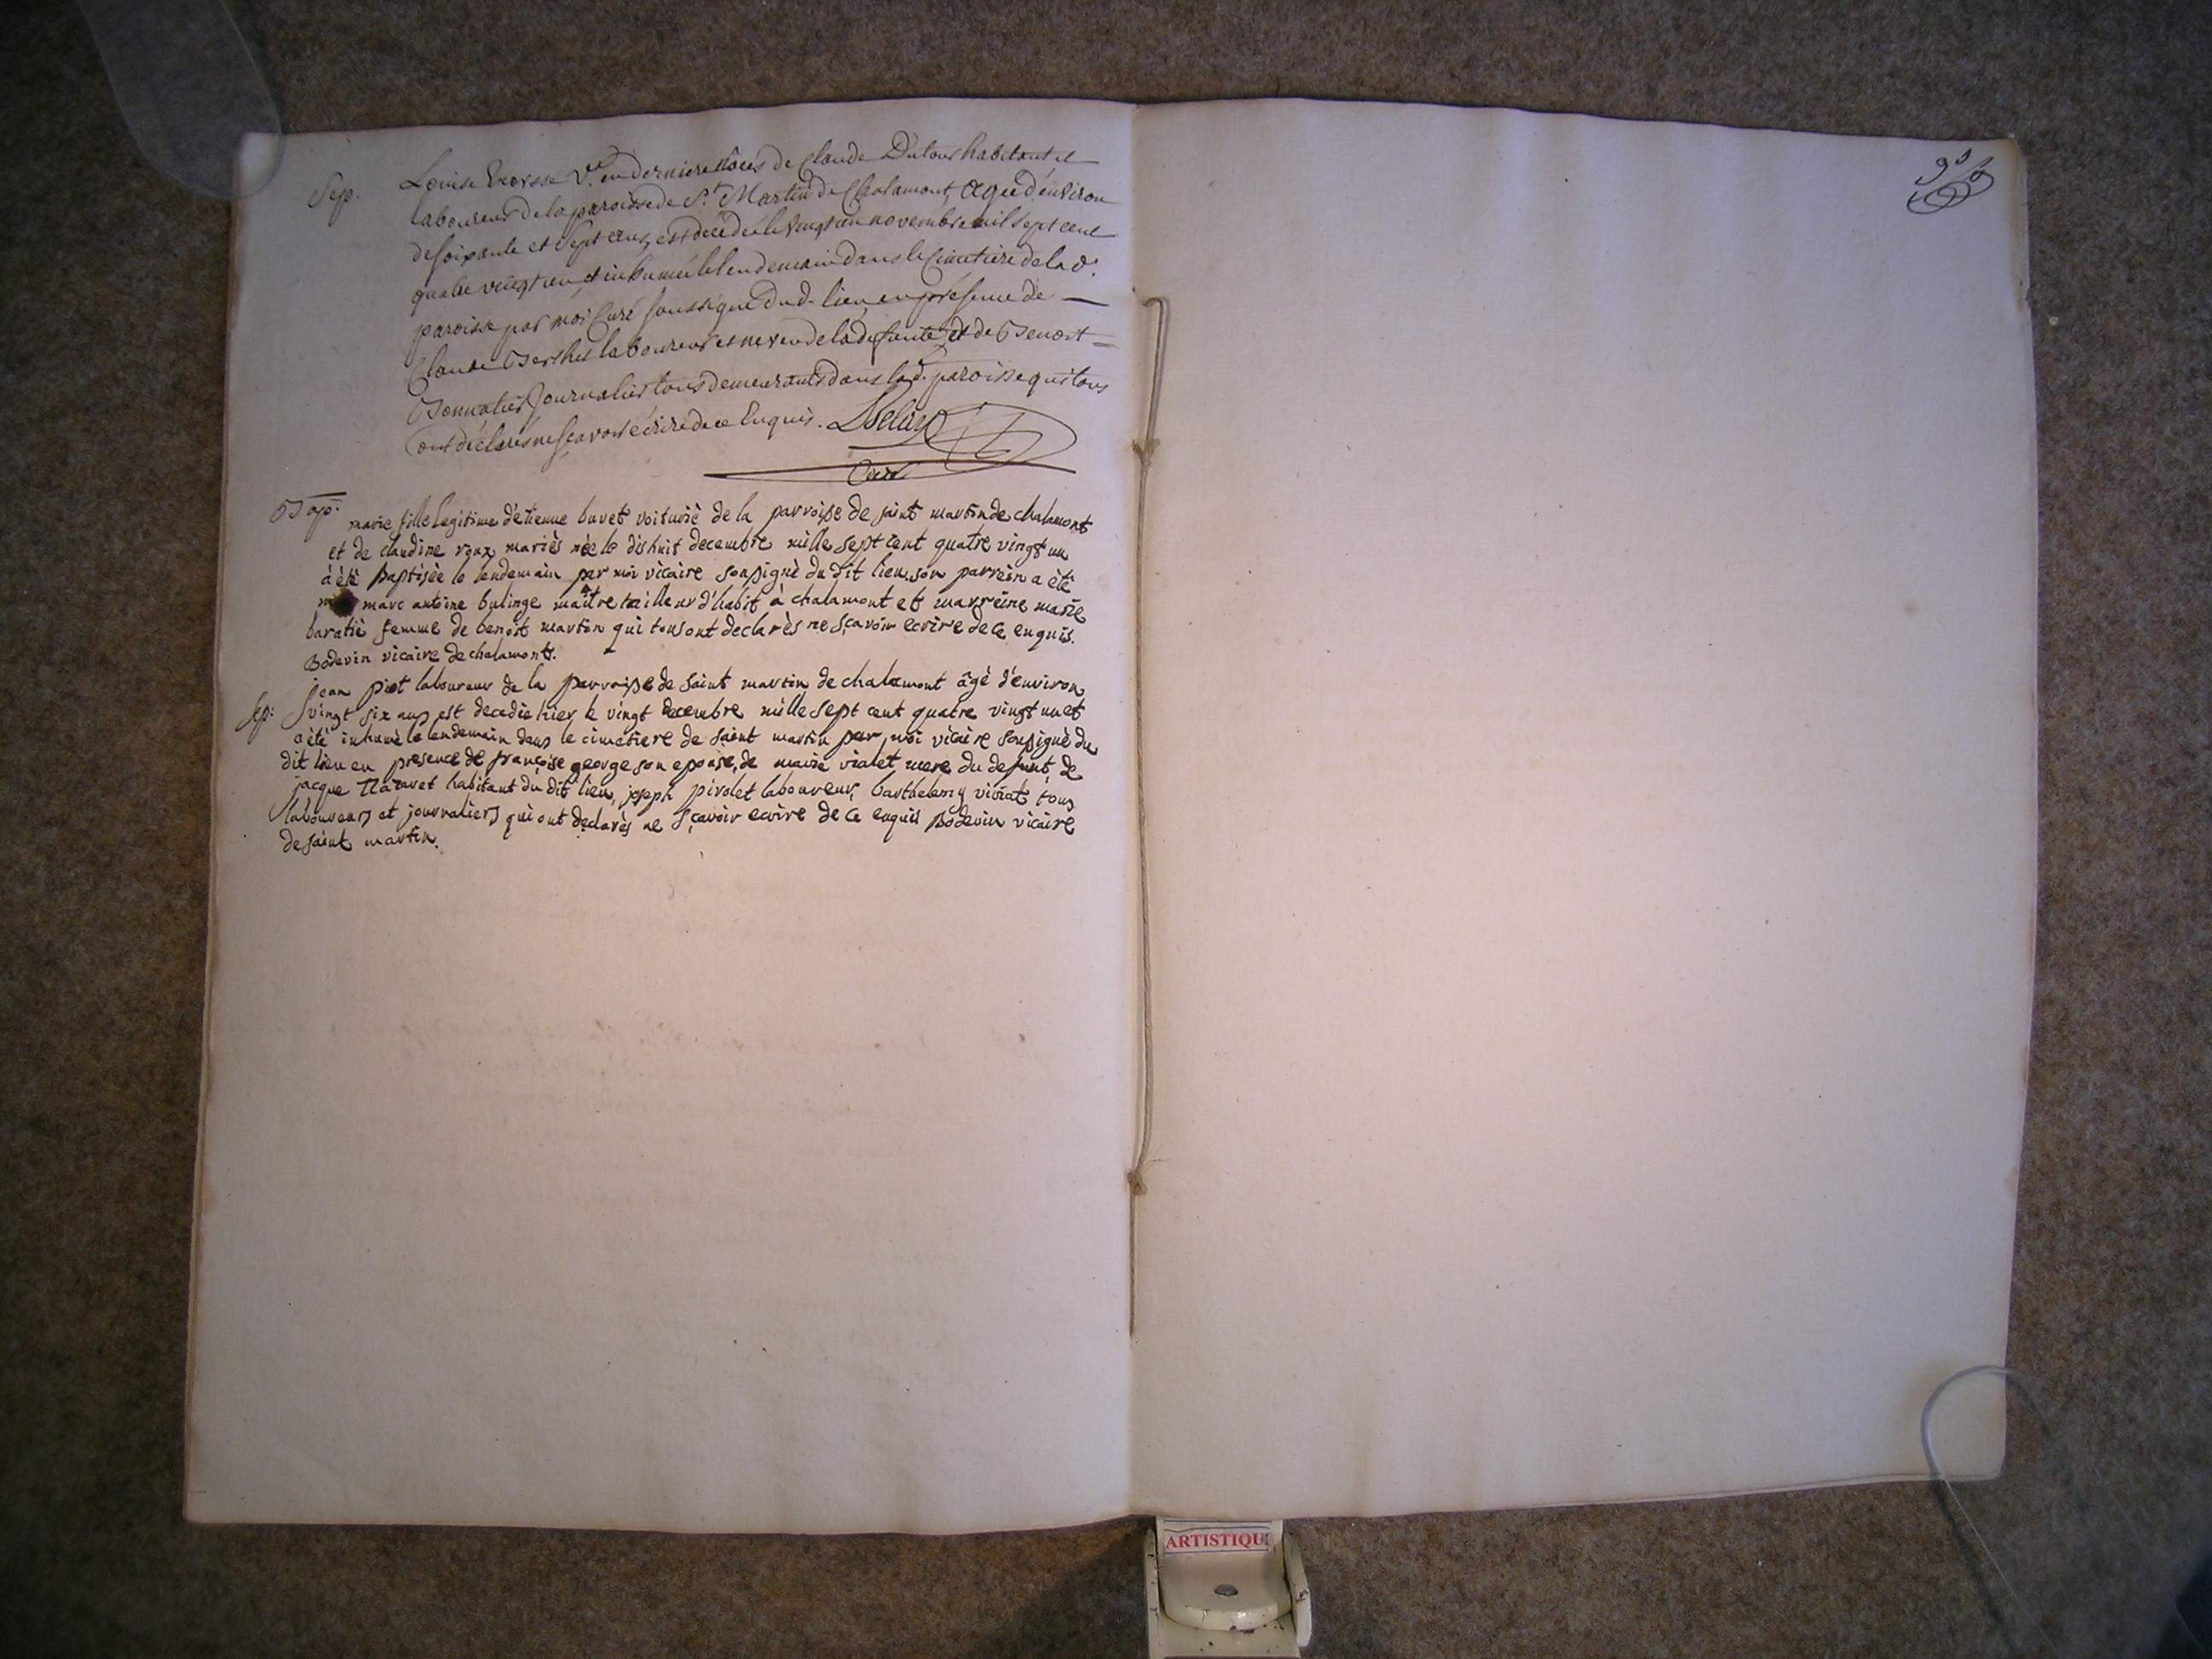 Sep. Louise V.e en derniere nôces de Claude Dutour habitant et
laboureur de la paroisse de S.t Martin de Chalamont, agée d'environ
de soixante et sept ans, est décédée le vingt un novembre mil sept cent
quatre vingt un et inhumée le lendemain dans le Cimetiere de la d.
paroisse par moi Curé soussigné dud. lieu en présence de
Claude laboureur et neveu de la defunte et de Benoit
Journalier tous demeurants dans la d. paroisse qui tous
ont déclarés ne sçavoir écrire de ce Enquis.
Curé
Bap. marie fille legitime d'etienne buvet voiturié de la parroisse de saint martin de chalamont
et de claudine roux mariès née le dishuit decembre mille sept cent quatre vingt un
à èté baptisèe le lendemain par moi vicaire soussignè du dit lieu, son parrein a èté
marc antoine bulinge maître tailleur d'habit à chalamont et marreine marie
baratié femme de benoit martin qui tous ont declarès ne sçavoir ecrire de ce enquis.
Bodevin vicaire de chalamont.
Sep: jean piot laboureur de la parroisse de saint martin de chalamont âgè d'environ
vingt six ans est decedie hier le vingt decembre mille sept cent quatre vingt un et
a èté inhumè le lendemain dans le cimetiere de saint martin par moi vicaire soussignè du
dit lieu en presence de françoise george son epouse, de marie vialet mere du defunt, de
jacque habitant du dit lieu, joseph pivolet laboureur, barthelemy viviat tous
laboureurs et journaliers qui ont declarès ne sçavoir ecrire de ce enquis Bodevin vicaire
de saint martin.
ARTISTIQU